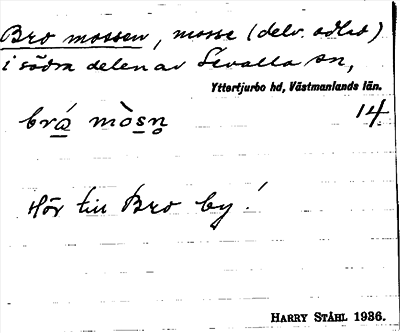 Bro mossen, mosse (delv. odlad)
i södra delen av Sevalla sn,
Yttertjurbo hd, Västmanlands län.
brá̱ mòs̱n̥ 14
Hör till Bro by!
HARRY STÅHL 1936.